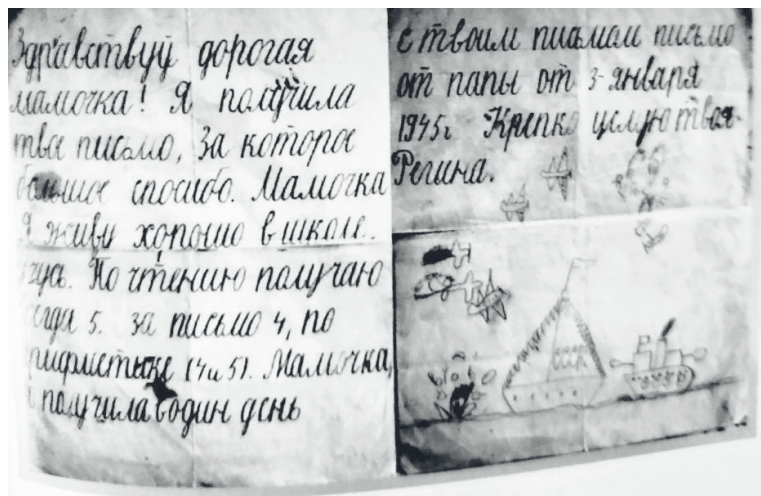 Здравствуй дорогая
мамочка! Я получила
твое письмо, за которое
большое спосибо. Мамочка
Я живу хорошо в школе.
учусь. По чтению получаю
всегда 5. за письмо 4, по
арифметике (4 и 5). Мамочка,
я получила в один день
с твоим письмом письмо
от папы от 3-января
1945г Крепко целую твоя
Регина.
СССР